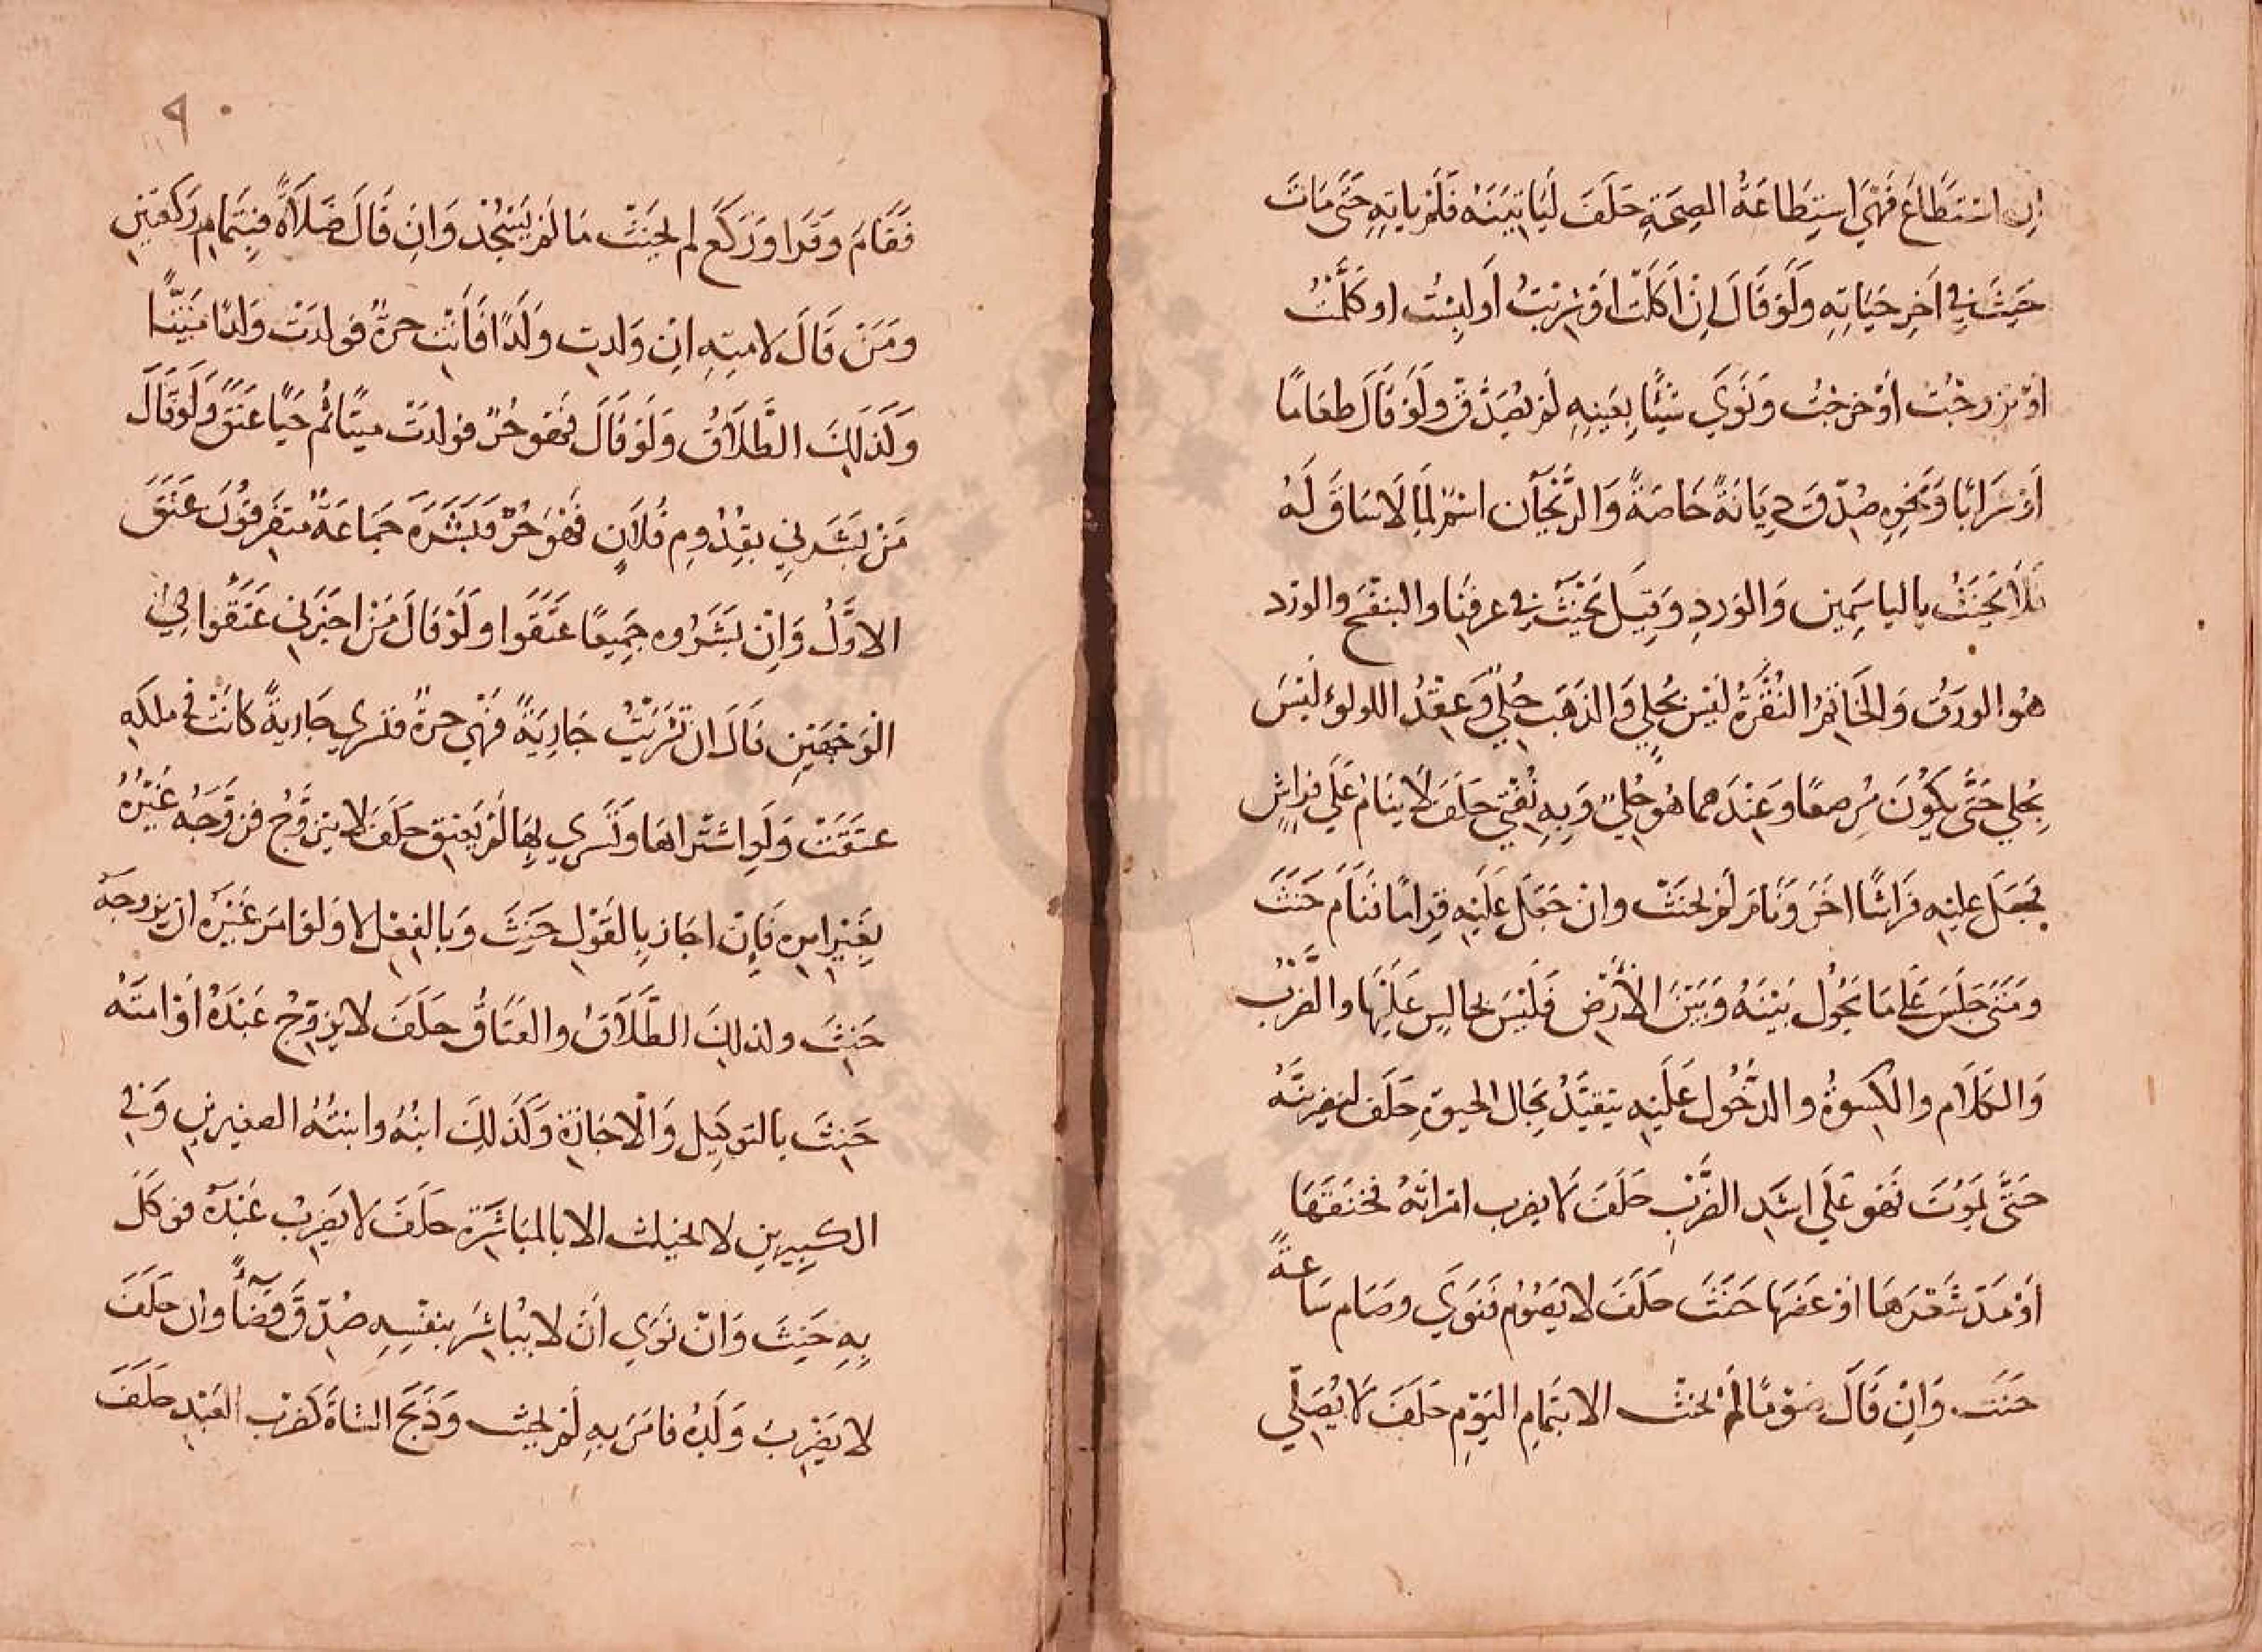 ان استطاع فهي استطاعة الصحة حلف ليأتينه فلم ياته حتى مات
حنث في اخر حياته ولو قال ان اكلت او شربت أو لبست او كلمت
أو تزوجت أو خرجت ونوي شيئا بعينه لم يصدق ولو قال طعاما
أو شرابا ونحوه صدق ديانة خاصة والريحان اسم لما لا ساق له
فلا يحنث بالياسمين والورد وقيل يحنث في عرفنا والبنفسج والورد
هو الورق والخاتم النقرة ليس بحلي والذهب حلي وعقد اللولو ليس
بحلي حتى يكون مرصعا وعندهما هو حلي وبه نفتي حلف لا ينام علي فراش
فجعل عليه فراشا اخر ونام لم يحنث وان جعل عليه قراما فنام حنث
ومتى جلس علي ما يحول بينه وبين الأرض فليس بجالس عليها والضرب
والكلام والكسوة والدخول عليه يتقيد بحال الحيوة حلف ليضربنه
حتى يموت فهو علي اشد الضرب حلف لا يضرب امراته فخنقها
أو مد شعرها او عضها حنث حلف لا يصوم فنوي وصام ساعة
حنث وان قال صوما لم يحنث الا بتمام اليوم حلف لا يصلي
٩٠
فقام وقرا وركع لم يحنث ما لم يسجد وان قال صلاة فبتمام ركعتين
ومن قال لامته ان ولدت ولدا فانت حرة فولدت ولدا ميتا
وكذلك الطلاق ولو قال فهو حر فولدت ميتا ثم حيا عتق ولو قال
من بشرني بقدوم فلان فهو حر فبشره جماعة متفرقون عتق
الاول وان بشروه جميعا عتقوا ولو قال من اخبرني عتقوا في
الوجهين قال ان تسريت جارية فهي حرة فتسري جارية كانت في ملكه
عتقت ولو اشتراها وتسري بها لم يعتق حلف لا يتزوج فزوجه غيره
بغير امره فإن اجاز بالقول حنث وبالفعل لا ولو امر غيره ان يزوجه
حنث وكذلك الطلاق والعتاق حلف لا يزوج عبده أو امته
حنث بالتوكيل والاجازة وكذلك ابنه وابنته الصغيرين وفي
الكبيرين لا يحنث الا بالمباشرة حلف لا يضرب عبده فوكل
به حنث وان نوي أن لا يباشر بنفسه صدق قضاء وان حلف
لا يضرب ولده فامر به لم يحنث وذبح الشاة كضرب العبد حلف